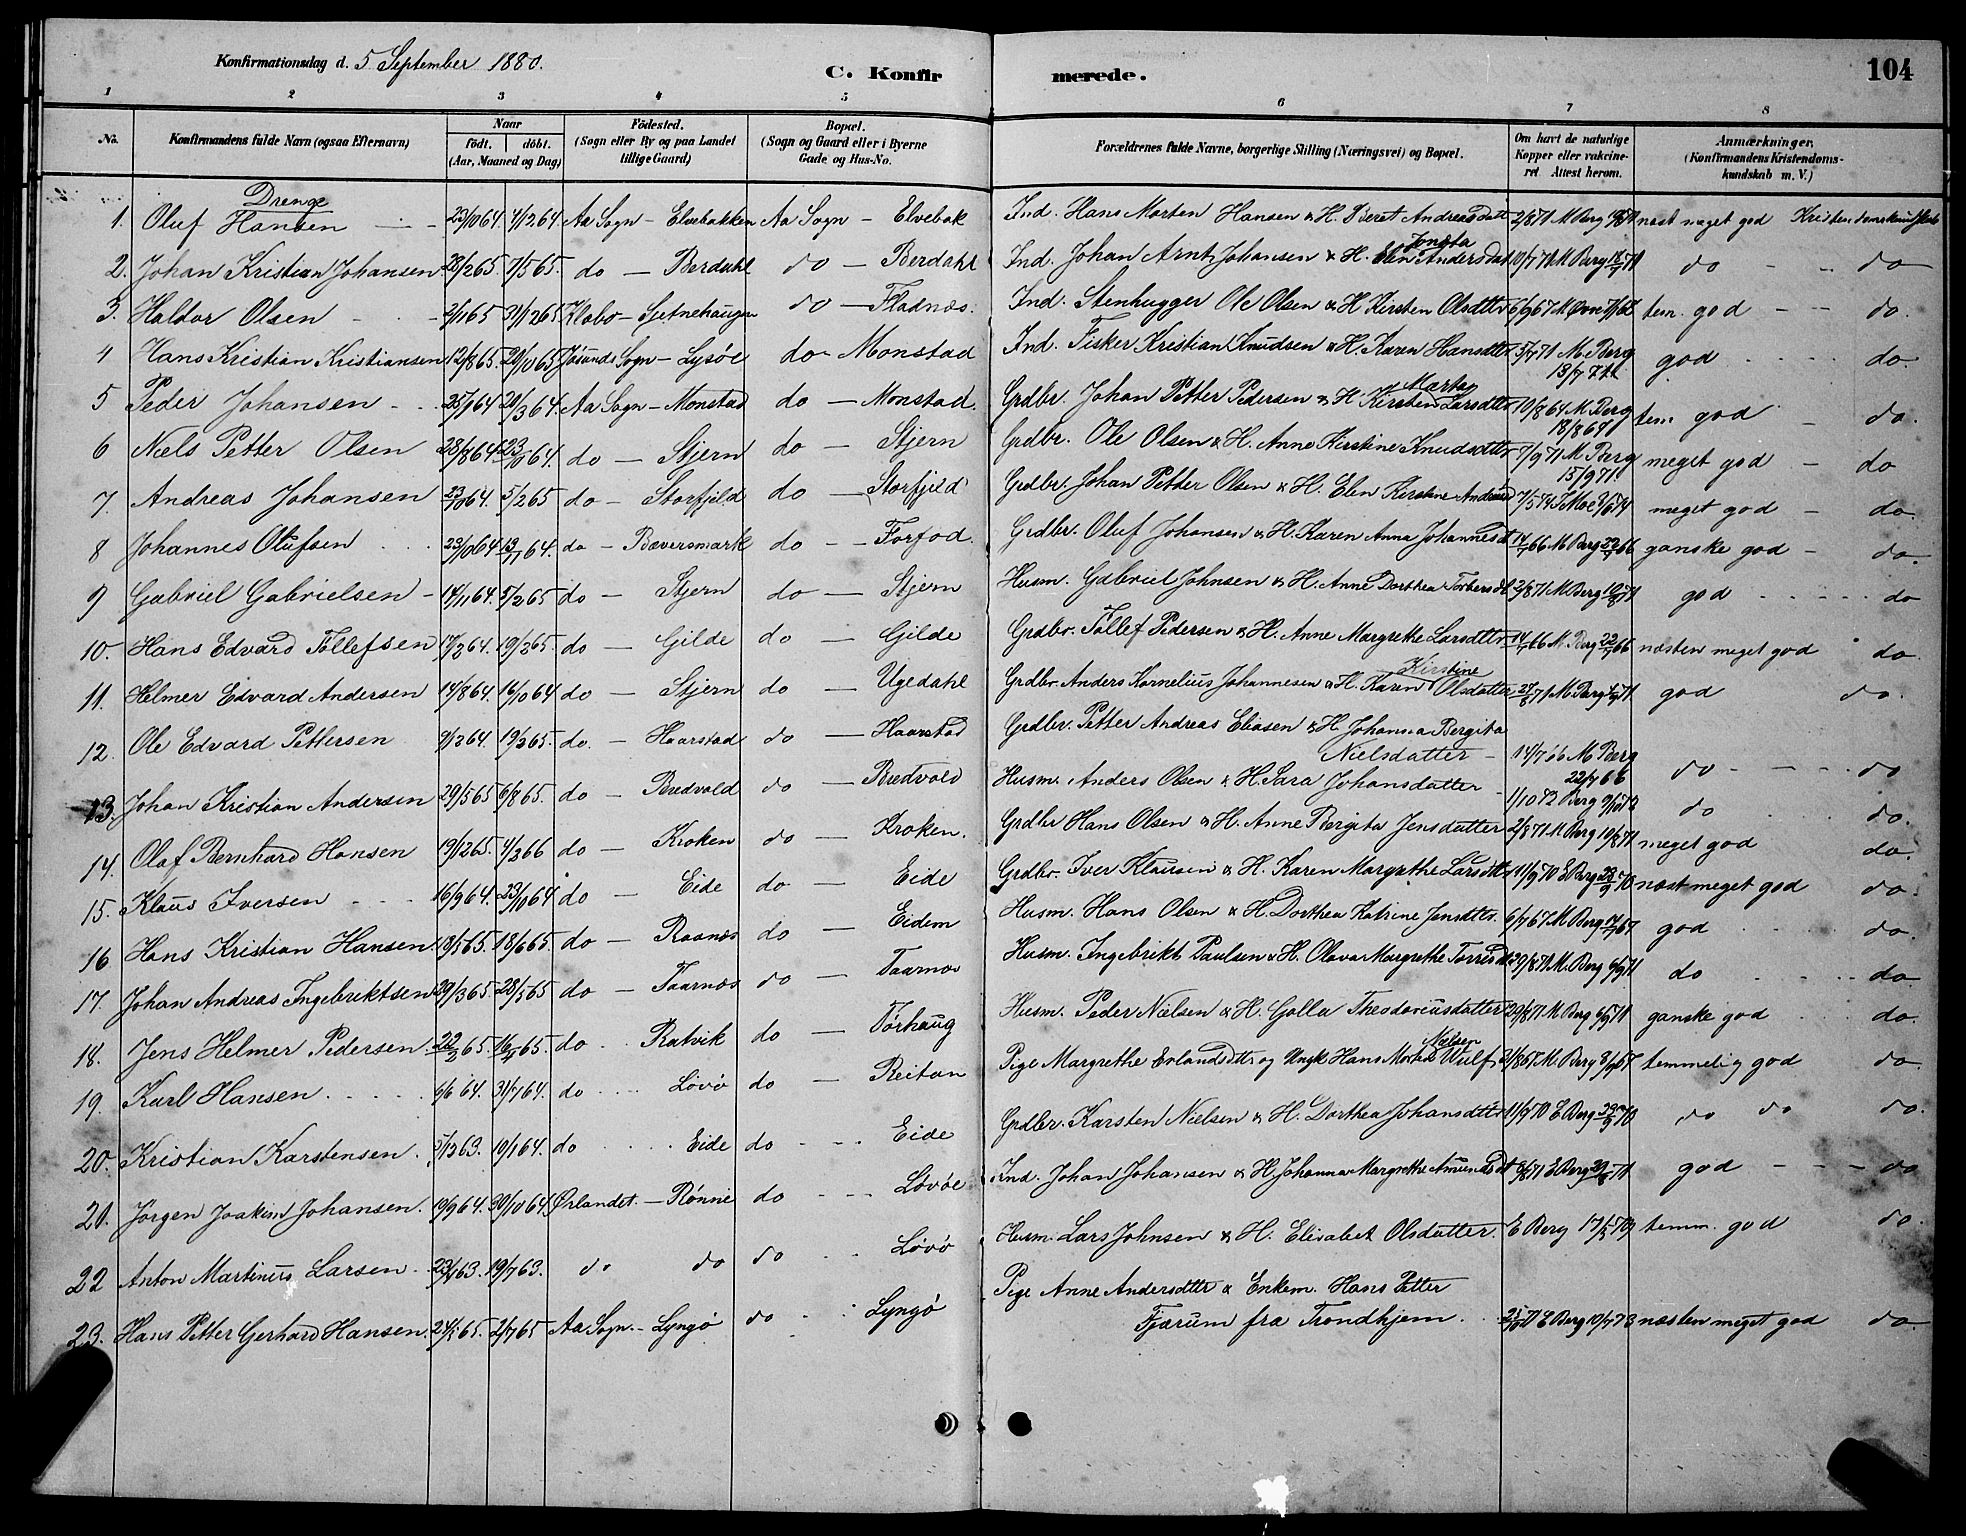 Konfirmationsdag d. 5 September 1880.
C. Konfir merede. 104
1 2 3 4 5 6 7 8
No. Konfirmandens fulde Navn (ogsaa Efternavn) Naar født. døbt. (Aar, Maaned og Dag) Fødested. (Sogn eller By og paa Landet tillige Gaard) Bopæl. (Sogn og Gaard eller i Byerne Gade og Hus-No. Forældrenes fulde Navne, borgerlige Stilling (Næringsvei) og Bopæl. Om havt de naturlige Kopper eller vakcineret. Attest herom. Anmærkninger. (Konfirmandens Kristendomskundskab m. V.)
Drenge
1. Oluf Hansen 23/10 64 4/12 64 Aa Sogn - Elvebakken Aa Sogn - Elvebak Ind. Hans Morten Hansen & H. Beret Andreasdatt 2/8 71 M Berg næst meget god Kristendomskundskab
2. Johan Kristian Johansen do - Berdahl do - Berdahl Ind. Johan Arnt Johansen & H. Elen Jonetta Andersdat 10/7 71 M Berg do - do
3. Haldor Olsen Klæbo - Sjetnehaugen do - Fladnæs. Ind. Stenhugger Ole Olsen & H. Kirsten Olsdtter 6/9 67 tem. god - do.
4 Hans Kristian Kristiansen 12/8 65 Jøsunds Sogn - Lysøe do - Monstad Ind. Fisker Kristian Knudsen & H. Karen Hansdtter 3/7 71 M. Berg 13/7 71. god do.
5 Peder Johansen 20/3 64 Aa Sogn - Monstad do - Monstad. Grdbr. Johan Petter Pedersen & H. Kirsten Marta Larsdtter 10/8 64 M Berg 18/8 64 tem god - do.
6 Niels Petter Olsen 28/8 64 do - Stjern do - Stjern Grdbr. Ole Olsen & H. Anne Kirstine Knudsdtter 7/9 71 M Berg 15/9 71. meget god - do
7 Andreas Johansen 5/2 65 do - Storfjeld do - Storfjeld Grdbr. Johan Petter Olsen & H. Elen Kirstine Andersd meget god - do.
8 Johannes Olufsen do - Bæversmark do - Forfod. Grdbr. Oluf Johansen & H. Karen Anna Johannesdt 14/7 66 M. Berg 22/7 66 ganske god - do.
9 Gabriel Gabrielsen - 14/11 64. 5/2 65 do - Stjern do - Stjern Husm. Gabriel Johnsen & H. Anne Dorthea Torbersdt 2/8 71 M Berg 10/8 71 god do
10. Hans Edvard Tollefsen 19/2 65. do - Gjilde do - Gjilde Grdbr. Tollef Pedersen & H. Anne Margrethe Larsdtter 14/7 66 M. Berg 22/7 66 næsten meget god do.
11. Helmer Edvard Andersen 14/8 64. 16/10 64 do - Stjern do - Ugedahl Grdbr. Anders Kornelius Johannesen & H. Karen Kirstine Olsdatter M Berg god do.
12. Ole Edvard Pettersen 19/2 65. do. - Haarstad do - Haarstad Grdbr. Petter Andreas Eliasen & H. Johanna Bergita
Nielsdatter - 14/7 66 M Berg 22/7 66 do - do
13. Johan Kristian Andersen 29/5 65 6/8 65. do - Bredvold do - Bredvold Husm. Anders Olsen & H. Sara Johansdatter - 1/10 72 Berg do do.
14. Olaf Bernhard Hansen 4/2 66 do - Kroken do - Kroken. Grdbr Hans Olsen & H. Anne Bergita Jensdatter 2/8 71 M Berg 10/8 71 meget god do.
15. Klaus Iversen 16/9 64. 23/10 64 do - Eide do - Eide Grdbr. Iver Klausen & H. Karen Margrethe Larsdttr 11/9 70 E Berg næst meget god do.
16 Hans Kristian Hansen 18/5 65. 18/6 65. do - Raanæs do - Eidem Husm. Hans Olsen & H. Dorthea Katrine Jensdtter. 6/7 67 M. Berg god do.
17. Johan Andreas Ingebrektsen 29/3 65 28/5 65 do - Taarnæs do - Taarnæs Husm. Ingebrikt Paulsen & H. Olava Margrethe 29/8 71 M. Berg 6/9 71 do do.
18. Jens Helmer Pedersen 22/2 65. 16/4 65. do - Ratvik do - Törhaug Husm. Peder Nielsen & H. Golla Theodoriusdatter 29/8 71 M Berg 6/9 71 ganske god do.
19. Karl Hansen 6/6 64. 31/7 64. do Lövö do - Reitan Pige Margrethe Erlandsdttr og Ungk. Hans Morten Nielsen Wulf M. Berg temmelig god do
20. Kristian Karstensen. 10/1 64. do Eide do Eide Grdbr. Karsten Nielsen & H. Dorthea Johansdtter 11/9 70 E Berg do do do.
21. Jørgen Joakim Johansen. 19/9 64. 30/10 64. Ørlandet. - Rønnie do Lövöe Ind. Johan Johansen & H. Johanna Margrethe Amundsdt E Berg god - do
22 Anton Martinus Larsen 19/7 63. do do do Lövö Husm. Lars Johnsen & H. Elisabet Olsdatter. E Berg temm. god do.
Pige Anne Andersdttr & Enkem. Hans Petter
23. Hans Petter Gerhard Hansen. 2/7 65 Aa Sogn. - Lyngö do Lyngö Fjærum fra Trondhjem. E Berg 10/7 73 næsten meget god do.